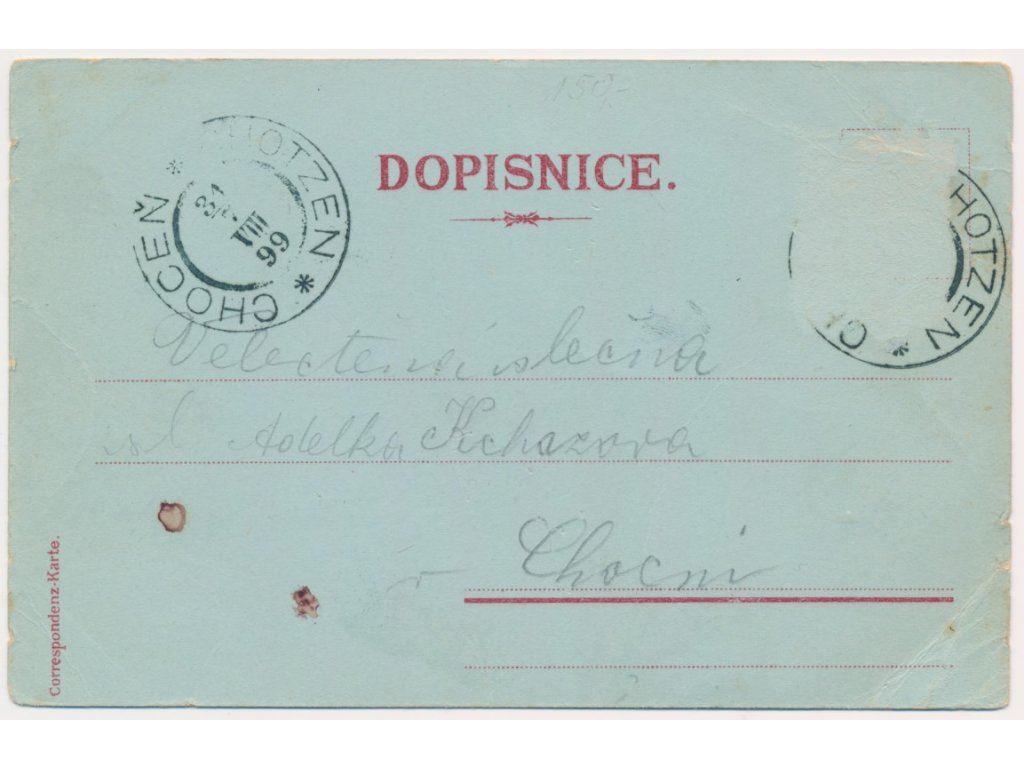 150,-
DOPISNICE.
CHOTZEN * CHOCEŇ *
31/8
VIII
99
HOTZEN * C
Velectěná slečna
sl Adelka
v Chocni
Correspondenz-Karte.